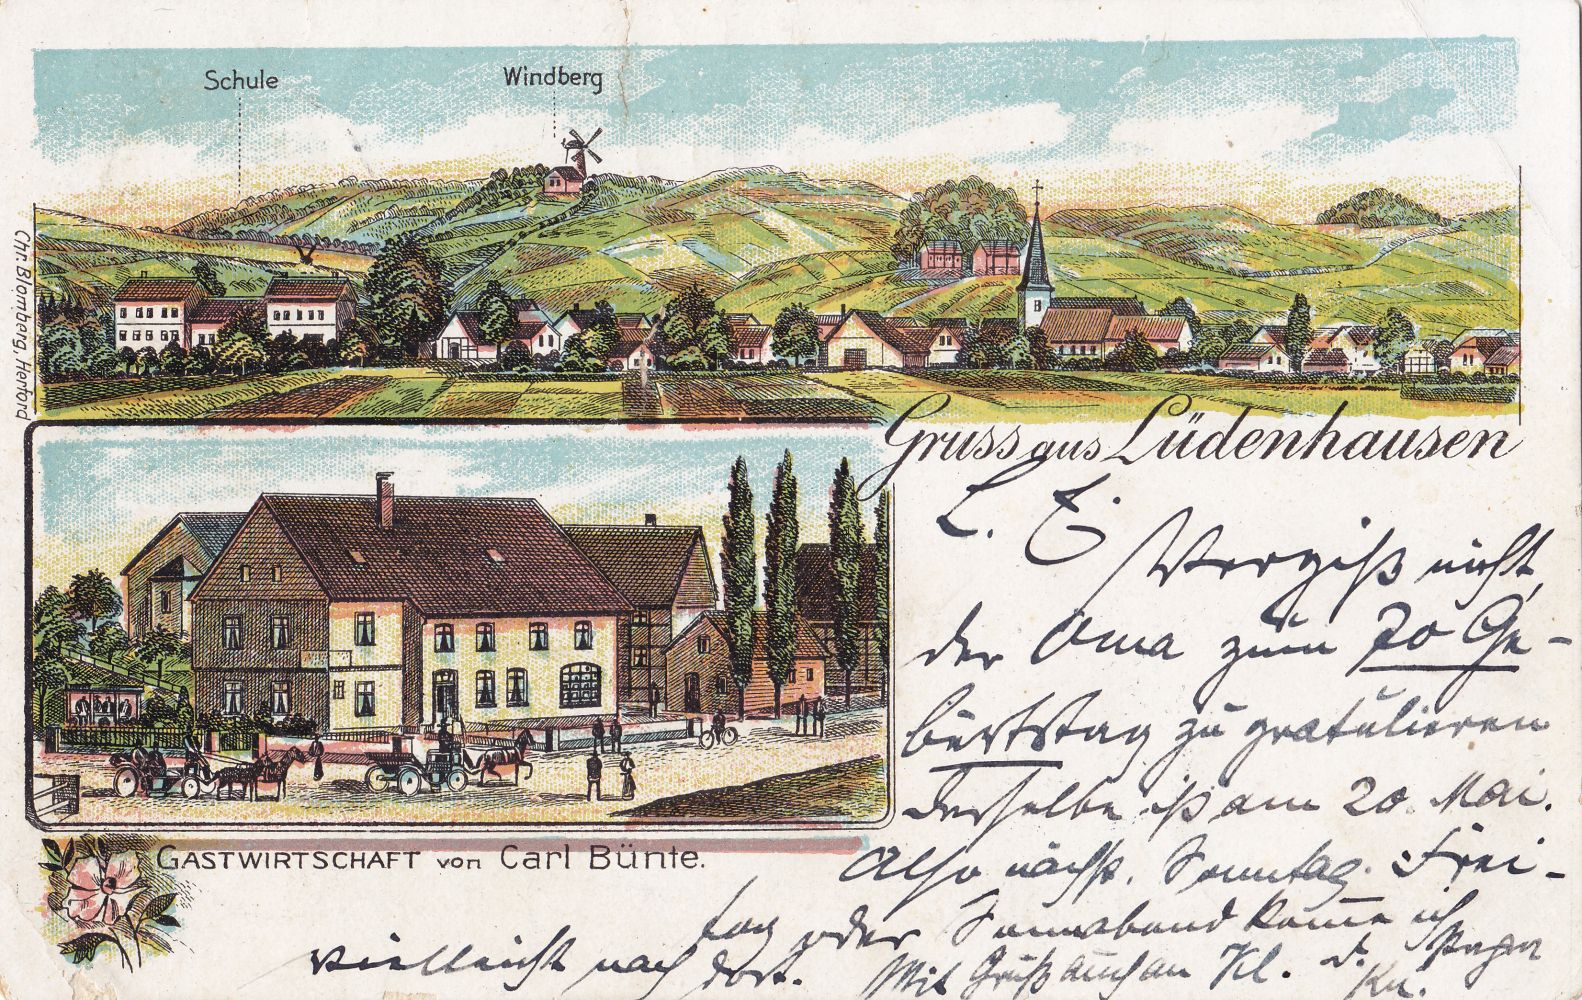 Schule
Windberg
Chr. Blomberg, Herford
Gruss aus Lüdenhausen
GASTWIRTSCHAFT von Carl Bünte.
L. E.
Vergiß nicht,
der Oma zum 70 Ge-
burtstag zu gratulieren
derselbe ist am 20. Mai.
Also nächst. Sonntag. Frei-
tag oder Sonnabend komme ich
vielleicht nach dort. Mit Gruß auch an Kl. d.